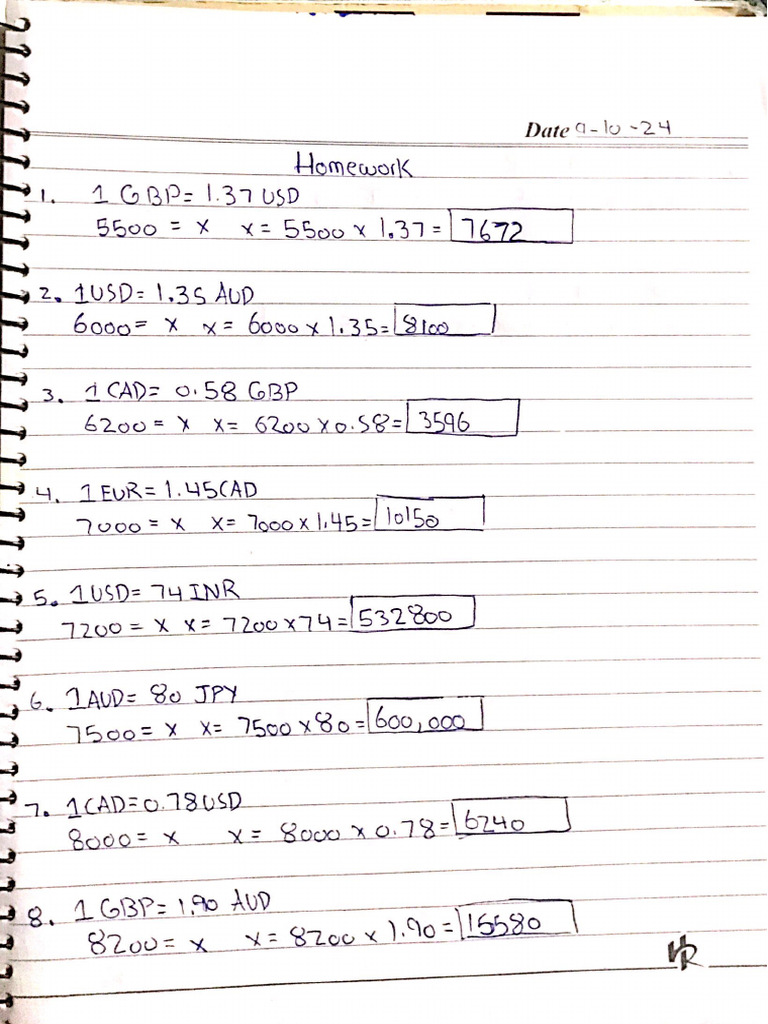 Date 9-10-24
Homework
1. 1 GBP = 1.37 USD
5500 = x x = 5500 x 1.37 = 7672
2. 1USD = 1.35 AUD
6000 = x x = 6000 x 1.35 = 8100
3. 1 CAD = 0.58 GBP
6200 = x x = 6200 x 0.58 = 3596
4. 1 EUR = 1.45 CAD
7000 = x x = 7000 x 1.45 = 10150
5. 1USD = 74 INR
7200 = x x = 7200 x 74 = 532800
6. 1AUD = 80 JPY
7500 = x x = 7500 x 80 = 600,000
7. 1CAD = 0.78 USD
8000 = x x = 8000 x 0.78 = 6240
8. 1 GBP = 1.90 AUD
8200 = x x = 8200 x 1.90 = 15580